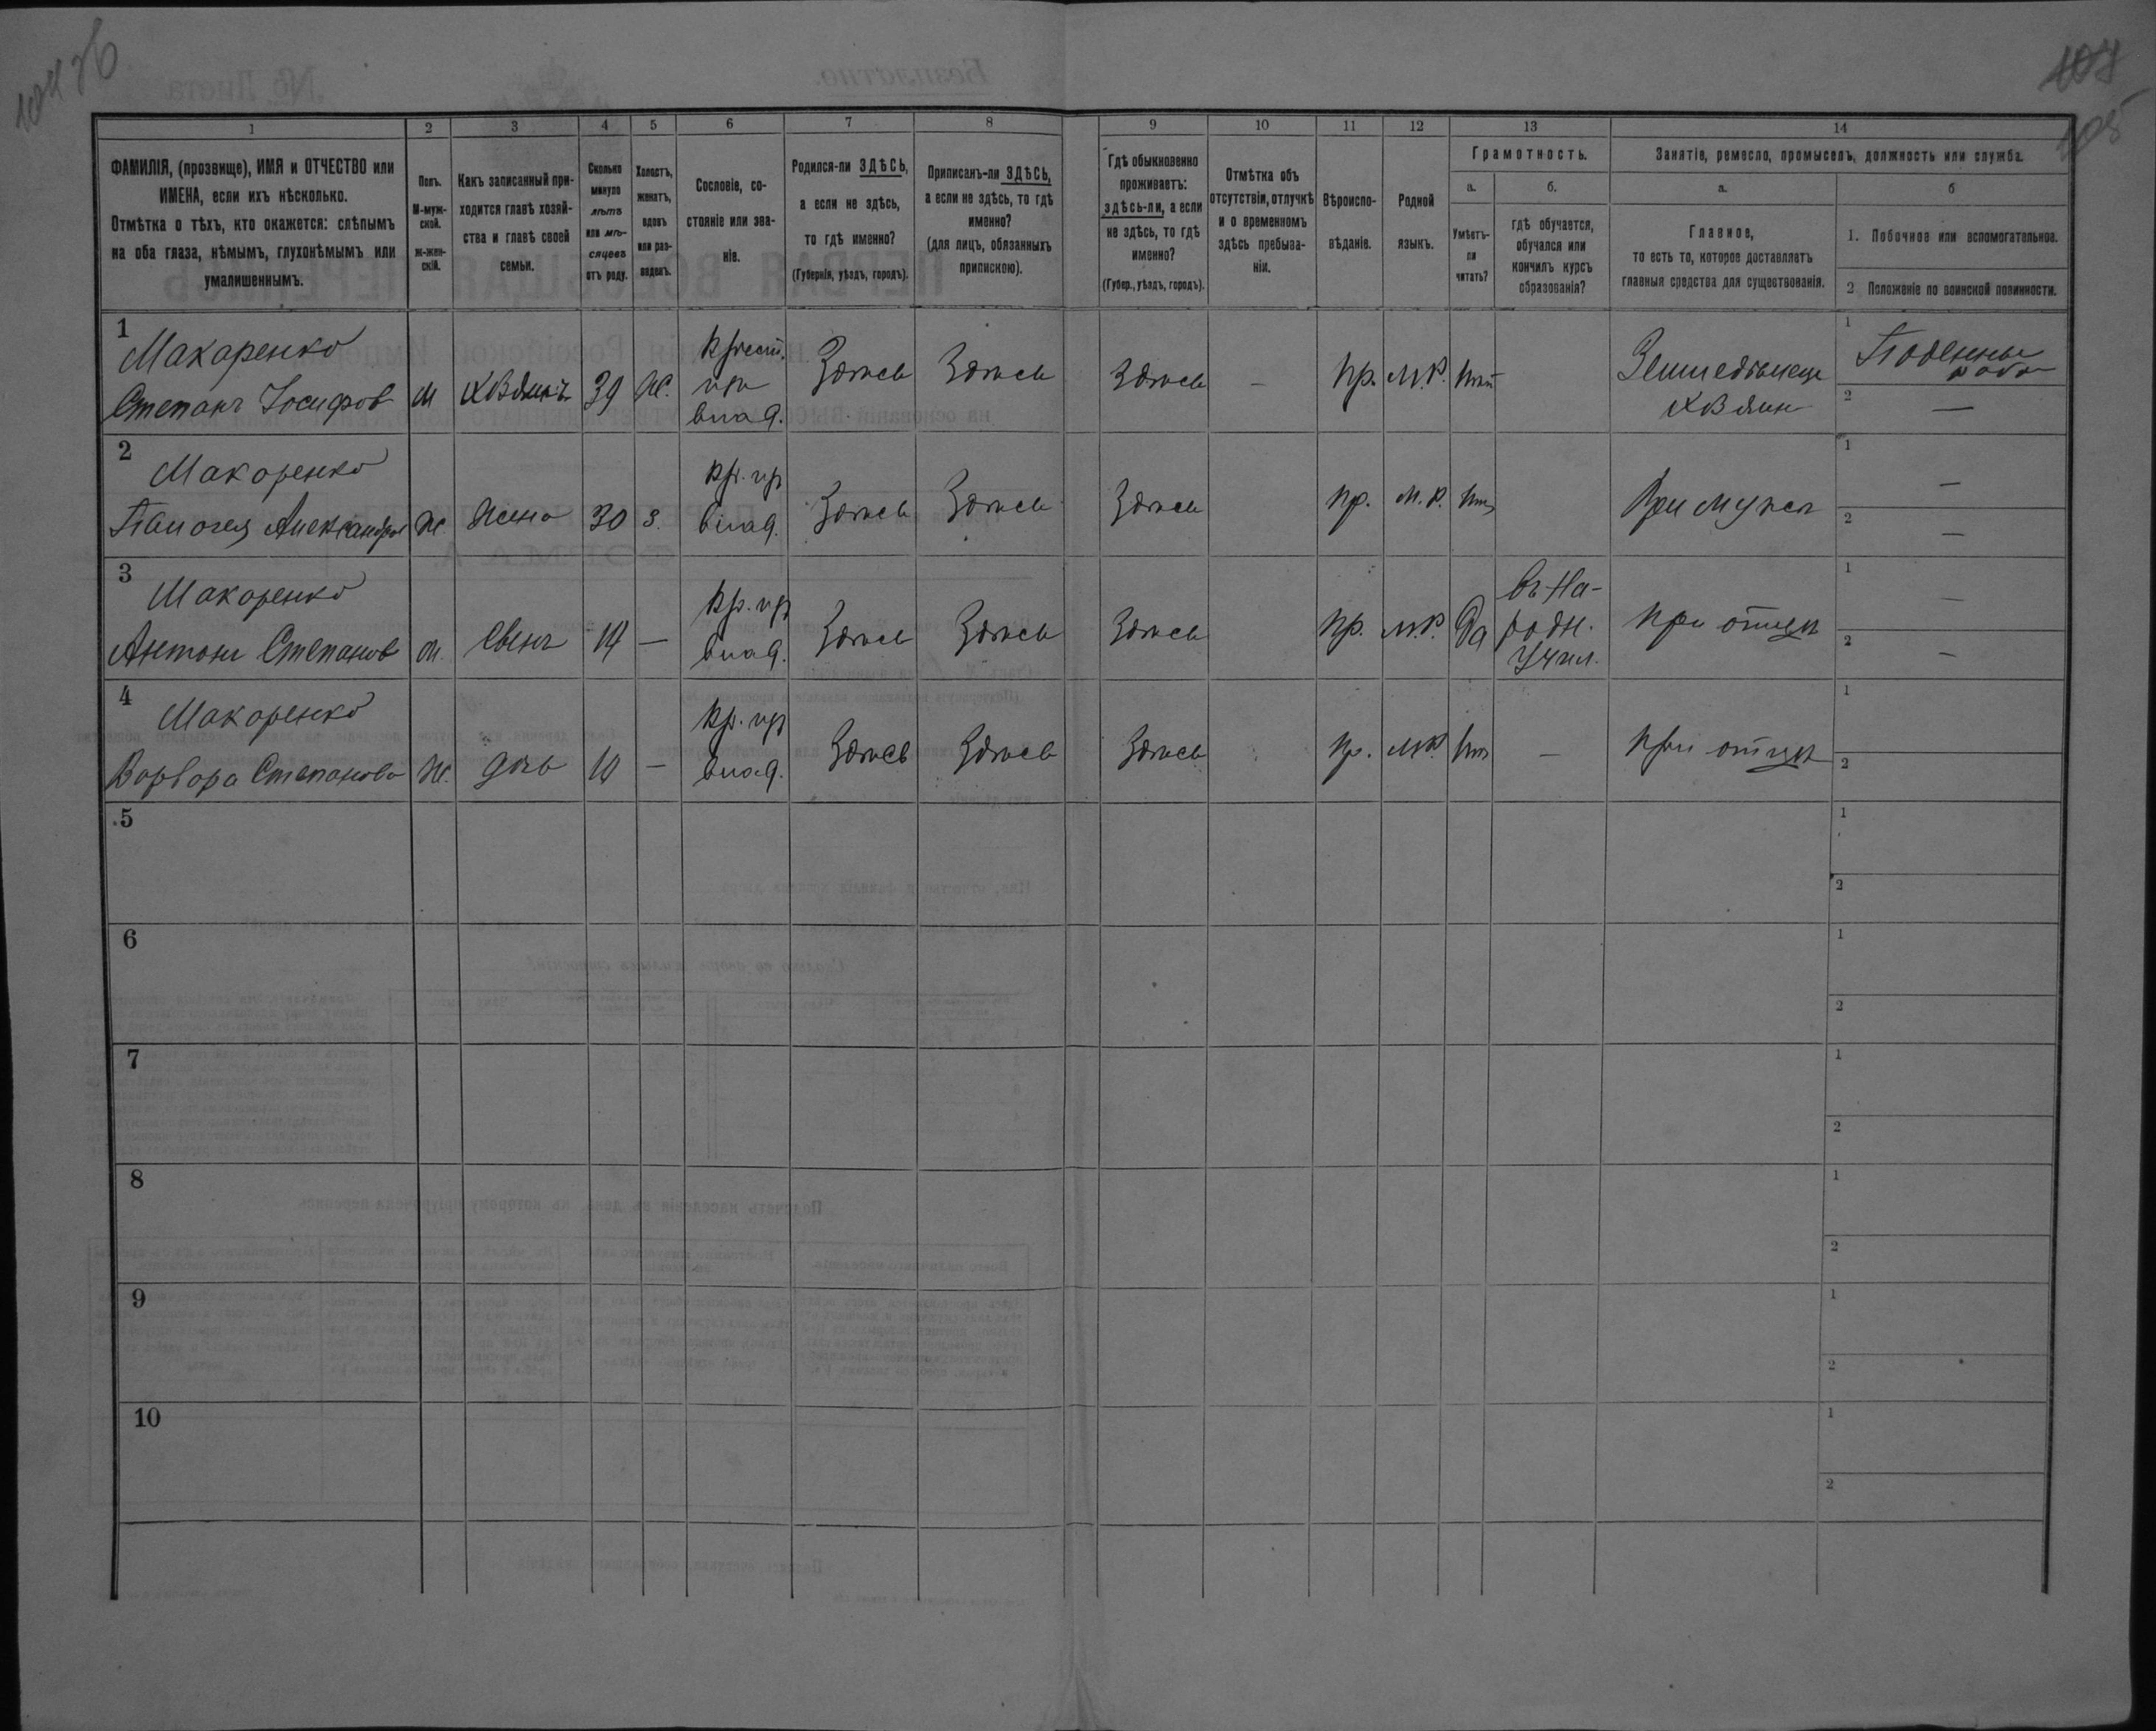 104 об
107
105
1 2 3 4 5 6 7 8 9 10 11 12 13 14
ФАМИЛІЯ, (прозвище), ИМЯ и ОТЧЕСТВО или
ИМЕНА, если ихъ нѣсколько.
Отмѣтка о тѣхъ, кто окажется: слѣпымъ
на оба глаза, нѣмымъ, глухонѣмымъ или
умалишеннымъ.
Полъ.
М-муж-
ской.
ж-жен-
скій.
Какъ записанный при-
ходится главѣ хозяй-
ства и главѣ своей
семьи.
Сколько
минуло
лѣтъ
или мѣ-
сяцевъ
отъ роду.
Холостъ,
женатъ,
вдовъ
или раз-
веденъ.
Сословіе, со-
стояніе или зва-
ніе.
Родился-ли ЗДѢСЬ,
а если не здѣсь,
то гдѣ именно?
(Губернія, уѣздъ, городъ).
Приписанъ-ли ЗДѢСЬ,
а если не здѣсь, то гдѣ
именно?
(для лицъ, обязанныхъ
припискою).
Гдѣ обыкновенно
проживаетъ:
здѣсь-ли, а если
не здѣсь, то гдѣ
именно?
(Губер., уѣздъ, городъ).
Отмѣтка объ
отсутствіи, отлучкѣ
и о временномъ
здѣсь пребыва-
ніи.
Вѣроиспо-
вѣданіе.
Родной
языкъ.
Грамотность.
а.
Умѣетъ-
ли
читать?
б.
гдѣ обучается,
обучался или
кончилъ курсъ
образованія?
Занятіе, ремесло, промыселъ, должность или служба.
а.
Главное,
то есть то, которое доставляетъ
главныя средства для существованія.
б
1. Побочное или вспомогательное.
2 Положеніе по воинской повинности.
1
Макаренко
Степанъ Іосифов
м
хозяинъ
39
ж.
Крест.
изъ
влад.
Здѣсь
Здѣсь
Здѣсь
—
пр.
М.Р.
нѣт
Земледѣлец
хозяин
1
Поденны
рабо
2 —
2
Макаренко
Александро
ж.
жена
30
з.
кр. изъ
влад.
Здѣсь
Здѣсь
Здѣсь
пр.
М.Р.
нѣт
При мужѣ
1 —
2 —
3
Макаренко
Антонъ Степанов
м.
сынъ
14
—
кр. изъ
влад.
Здѣсь
Здѣсь
Здѣсь
пр.
М.Р.
Да
въ На-
родн.
Учил.
при отцѣ
1 —
2 —
4
Макаренко
Варвара Степанова
ж.
дочь
10
—
кр. изъ
влад.
Здѣсь
Здѣсь
Здѣсь
пр.
М.Р.
нѣт
—
при отцѣ
1
2
5
1
2
6
1
2
7
1
2
8
1
2
9
1
2
10
1
2